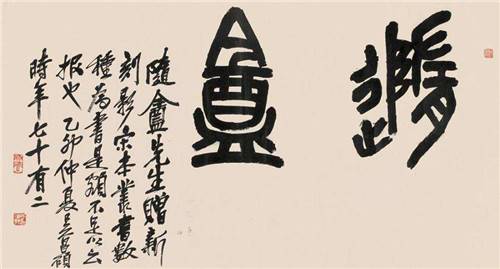 隨盦
隨盦先生贈新
刻影宋本叢書數
種為書是額不足以云
報也乙卯仲夏吳昌碩
時年七十有二